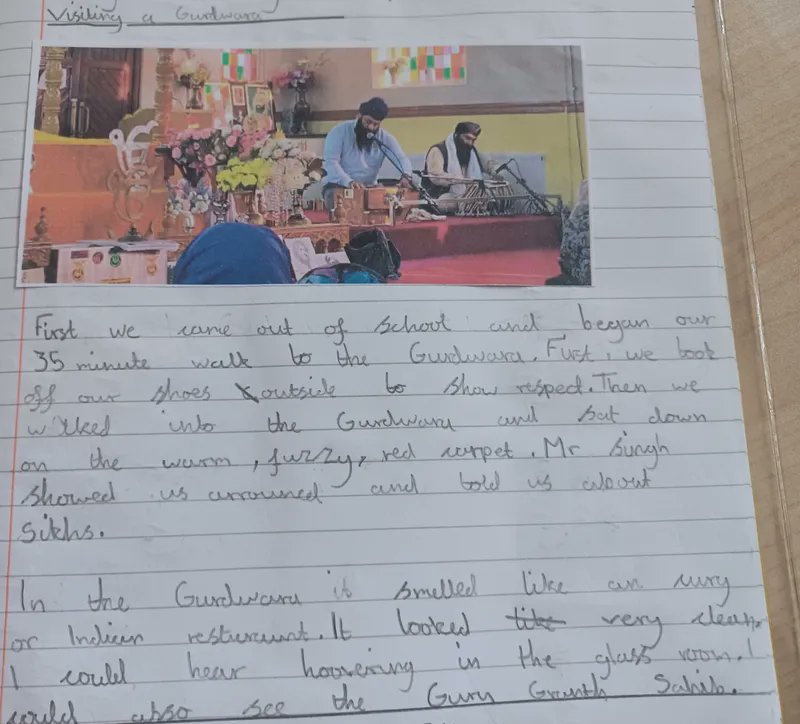 Visiting a Gurdwara
First we came out of school and began our
35 minute walk to the Gurdwara. First, we took
off our shoes outside to show respect. Then we
walked into the Gurdwara and sat down
on the warm, fuzzy, red carpet. Mr Singh
showed us arrouned and told us about
Sikhs.
In the Gurdwara it smelled like an
or Indian resturaunt. It looked like very clean,
I could hear hoovering in the glass room. I
could also see the Guru Granth Sahib.